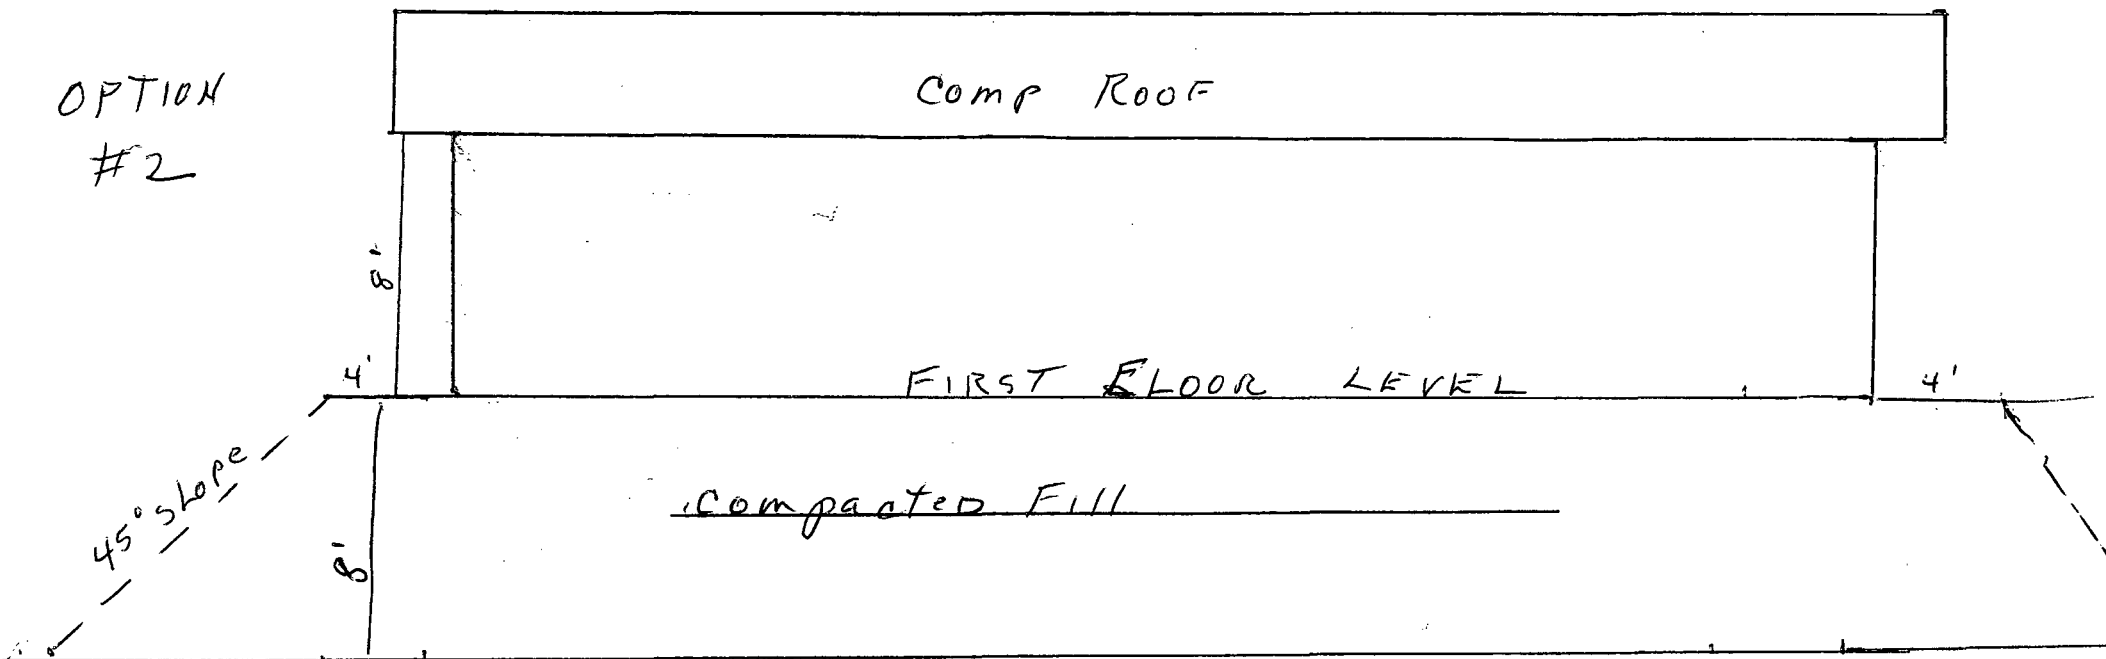 OPTION
#2
Comp Roof
8'
4'
FIRST FLOOR LEVEL
4'
45° slope
8'
compacted Fill